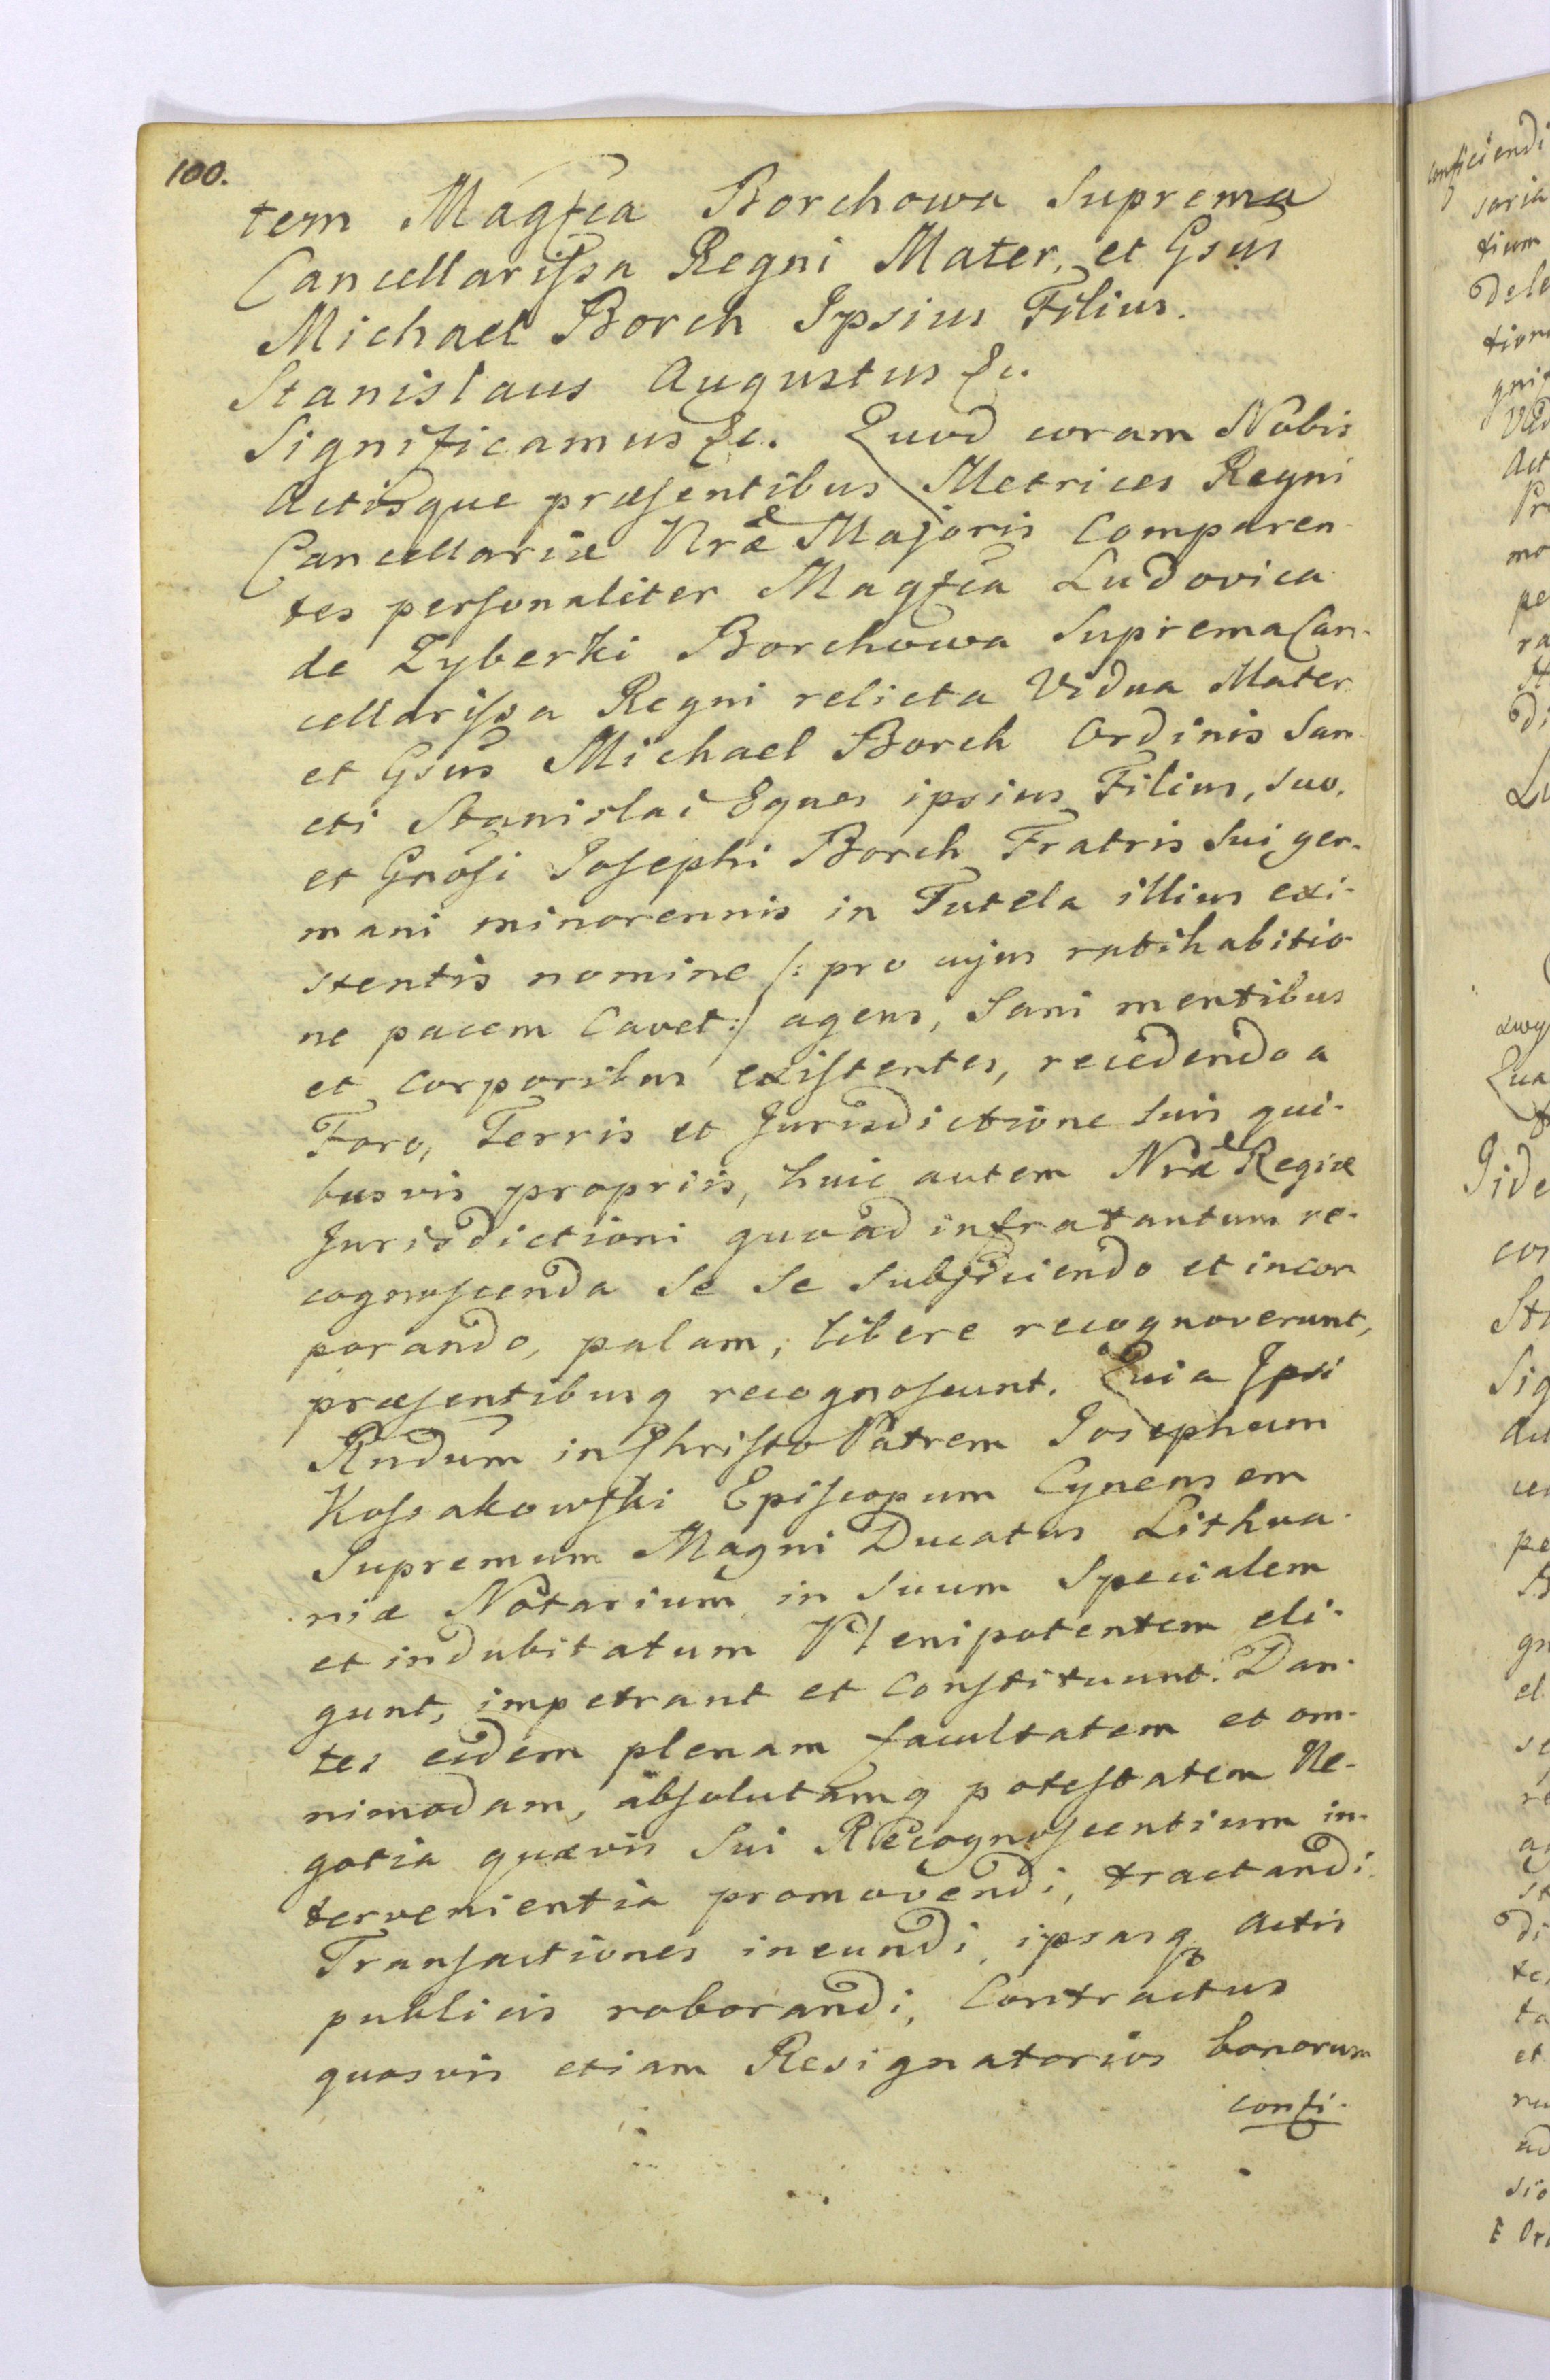 100.
tem Magfca Borchowa Suprema
Cancellarissa Regni Mater, et Gsus
Michael Borch Ipsius Filius.
Stanislaus Augustus &c.
Significamus &c. Quod coram Nobis
Actisque præsentibus Metrices Regni
Cancellariæ Nræ Majoris Comparen-
tes personaliter Magfca Ludovica
de Zyberki Borchowa Suprema Can-
cellarissa Regni relicta Vidua Mater
et Gsus Michael Borch Ordinis San-
cti Stanislai Eques ipsius Filius, suo,
et Gnosi Josephi Borch Fratris Sui ger-
mani minorennis in Tutela illius exi-
stentis nomine /: pro cujus ratihabitio-
ne pacem Cavet :/ agens, Sani mentibus
et Corporibus existentes, recedendo a
Foro, Terris et Jurisdictione Suis qui-
busvis propriis, huic autem Nræ Regiæ
Jurisdictioni quoad infra tantum re-
cognoscenda Se Se Subjiciendo et incor
porando, palam, libere recognoverunt,
præsentibusq recognoscunt. Quia Ipsi
Rndum in Christo Patrem Josephum
Kossakowski Episcopum Cynensem
Supremum Magni Ducatus Lithva-
niæ Notarium in Suum Specialem
et indubitatum Plenipotentem eli-
gunt, impetrant et Constituunt. Dan-
tes eidem plenam facultatem et om-
nimodam, absolutamq potestatem Ne-
gotia quævis Sui Recognoscentium in-
tervenientia promovendi, tractandi.
Transactiones ineundi, ipsasq Actis
publicis roborandi, Contractus
quosvis etiam Resignatorios bonorum
confi-